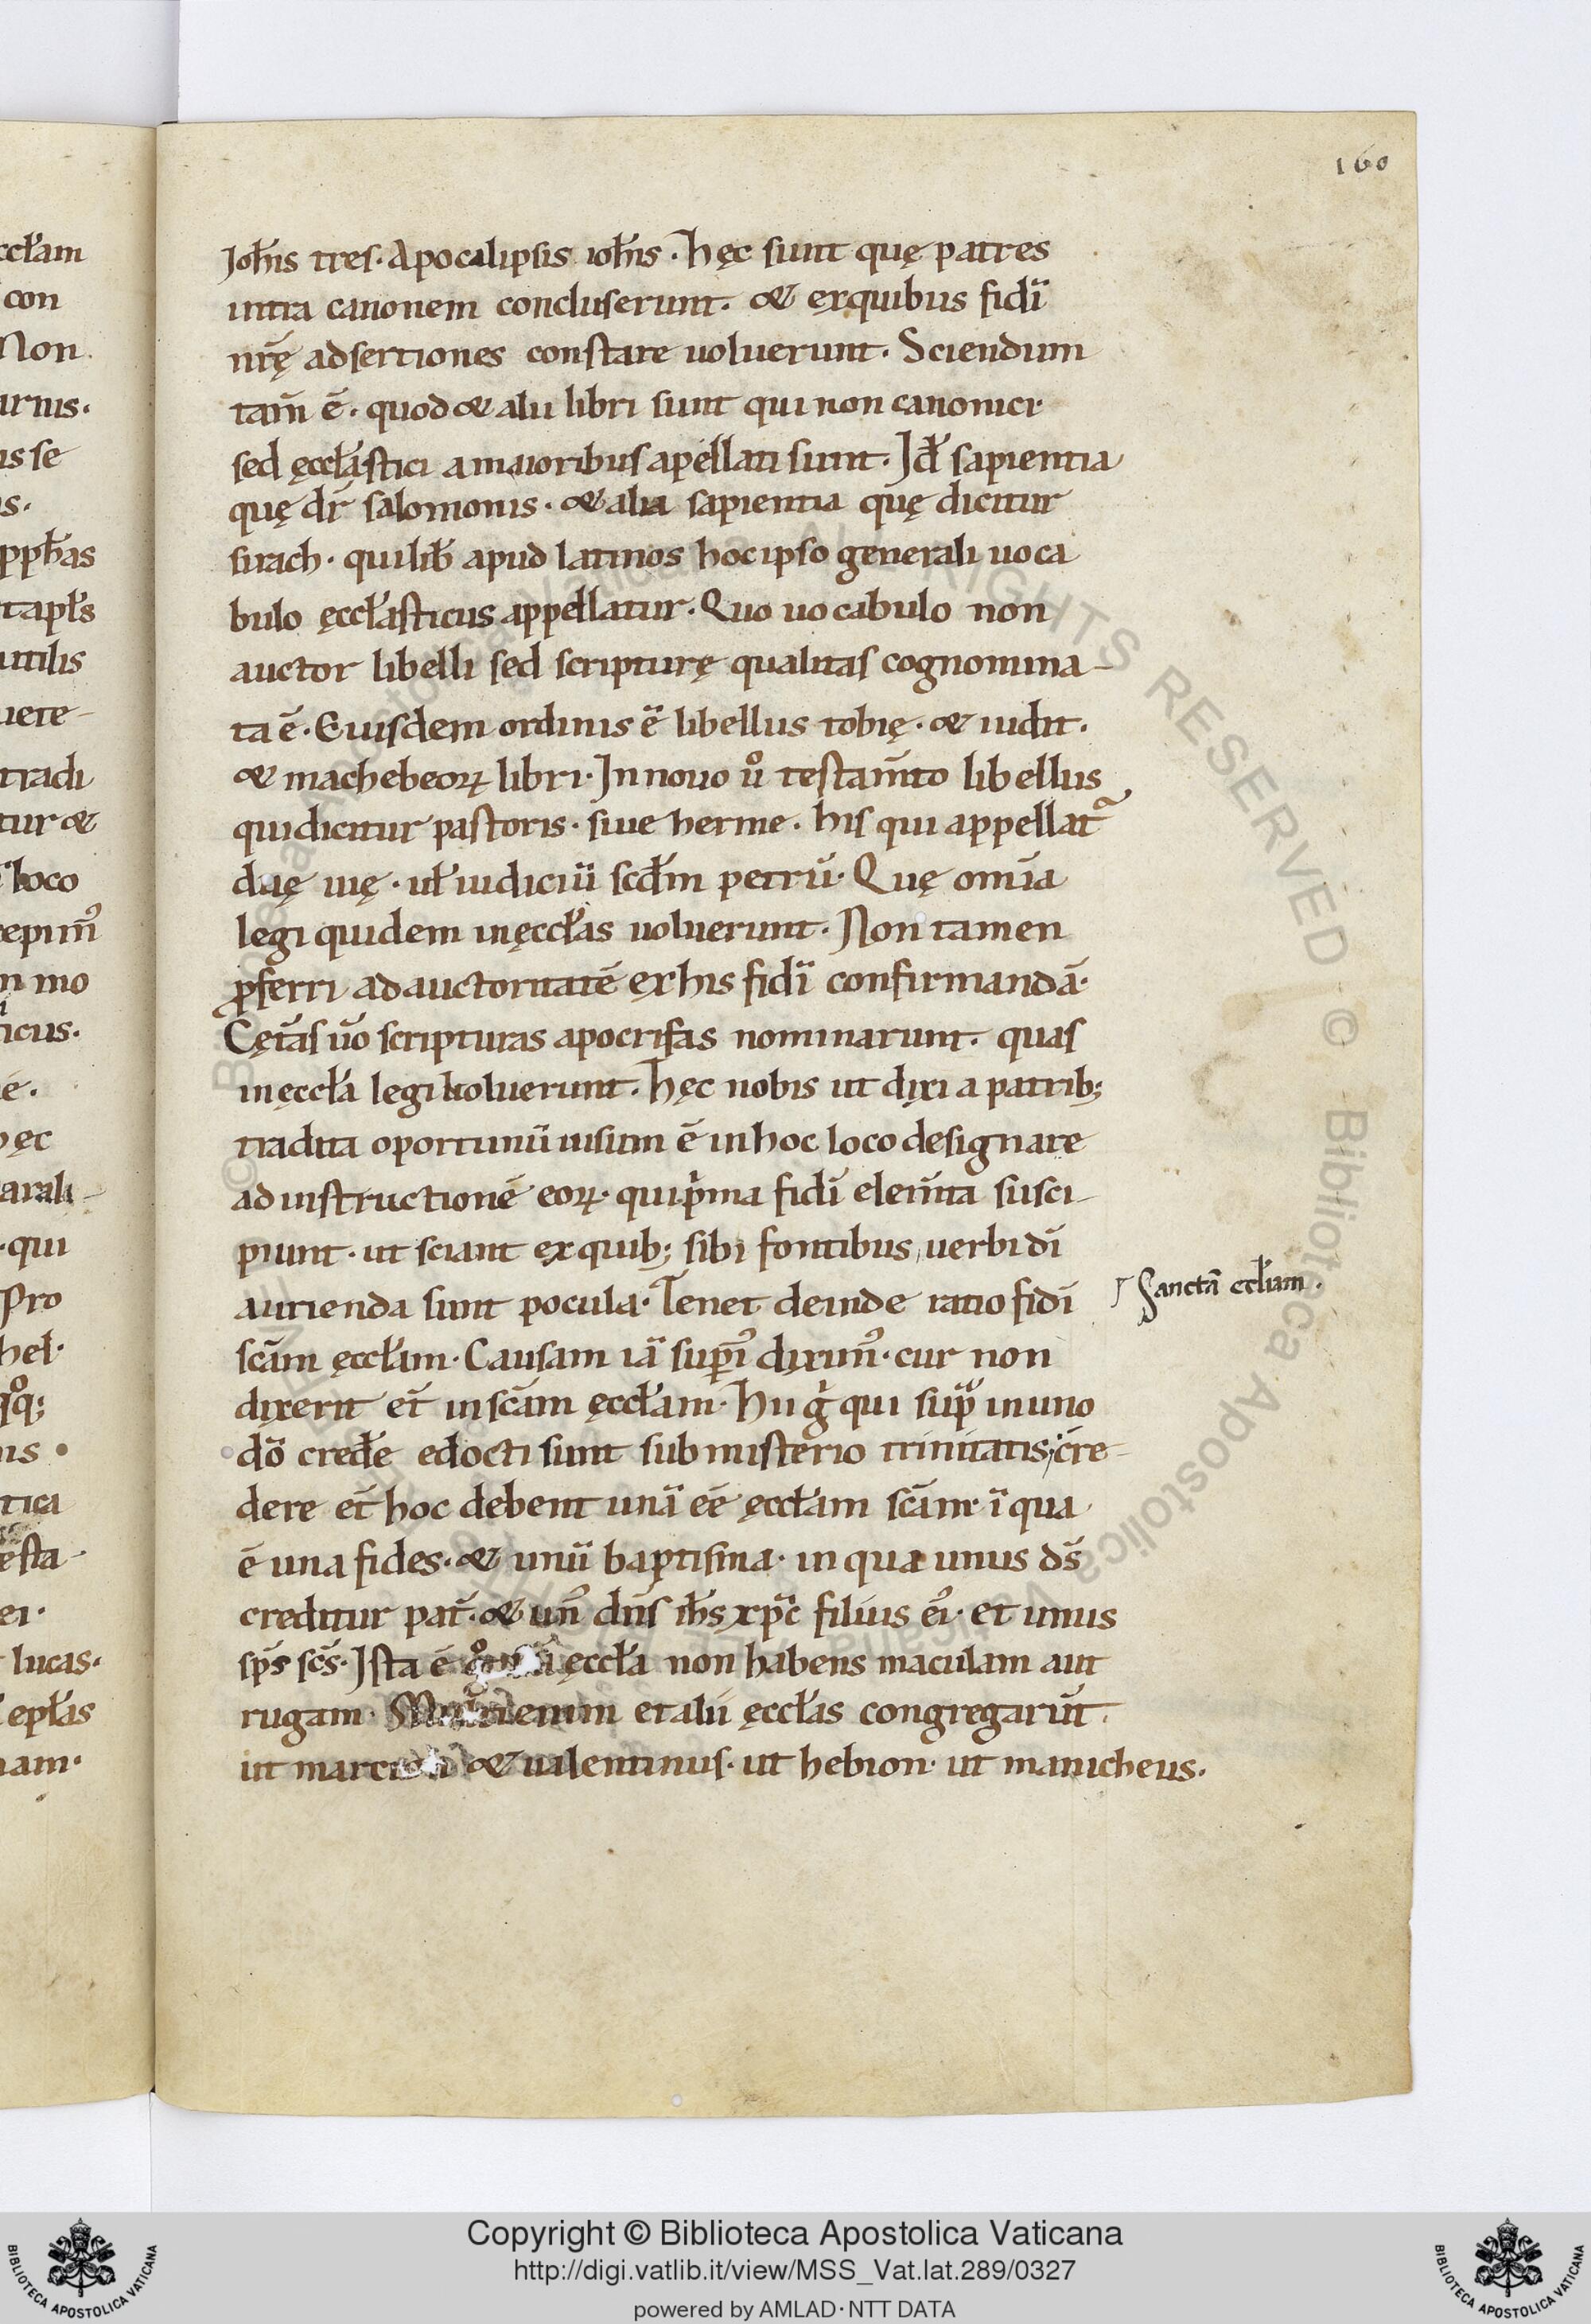 160
ccł̄am
con
Non
urnis.
us se
s.
pph̄as
tapl̄s
utilis
uete-
tradi
tur &
loco
cepim᷒
n mo
icus.
ē.
hęc
arali-
qui
Pro
hel.
qͦq;
nis.
tica
testa-
ei.
lucas.
epl̄as
nam.
Joh̄is tres. Apocalipsis ioh̄is. hęc sunt quę patres
intra canonem concluserunt. & exquibus fidī
nr̄ę adsertiones constare uoluerunt. Sciendum
tam̄ ē. quod & alii libri sunt qui non canonici.
sed ęccł̄astici a maioribus apellati sunt. Jd̄ sapientia
quę dr̄ salomonis. & alia sapientia quę dicitur
sirach. qui lib̄ apud latinos hoc ipso generali uoca
bulo ęccł̄asticus appellatur. Quo uocabulo non
auctor libelli sed scripturę qualitas cognomina-
ta ē. Euisdem ordinis ē libellus tobię. & iudit.
& machebeoꝝ libri. In nouo uͦ testam̄to libellus
qui dicitur pastoris. siue herme. his qui appellat᷒
duę uię. ul̄ iudiciū scd̄m petrū. Quę omīa
legi quidem in ęccł̄as uoluerunt. Non tamen
ꝓferri ad auctoritatē ex his fidī confirmandā.
Cęt̄as ūo scripturas apocrifas nominarunt. quas
in ęccł̄a legi noluerunt. hęc nobis ut dixi a patrib;
tradita oportunū uisum ē in hoc loco designare
ad instructionē eoꝝ. qui pͥma fidī elem̄ta susci-
piunt. ut sciant ex quib; sibi fontibus uerbi dī
aurienda sunt pocula. Tenet deinde ratio fidī
sc̄am ęccł̄am. Causam iā supī᷒ dixim᷒. cur non
dixerit et̄ in sc̄am ęccł̄am. Hii gͥ qui sup̄ in uno
dō cred̄e edocti sunt sub misterio trinitatis; cre-
dere et̄ hoc debent unā eē ęccł̄am sc̄am. ī qua
ē una fides. & unū baptisma. in qua unus ds̄
creditur pat̄. & un᷒ dn̄s ih̄s xp̄c filius ei᷒. et unus
sp̄s sc̄s. Jsta ē ęccł̄a non habens maculam aut
rugam. Multi enim et alii ęccł̄as congregarūt.
ut marcion & ualentinus. ut hebion. ut manicheus.
Sanctā ecl̄iam.
© Biblioteca Apostolica Vaticana ALL RIGHTS RESERVED © Biblioteca Apostolica Vaticana ALL RIGHTS RESERVED
BIBLIOTECA APOSTOLICA VATICANA
Copyright © Biblioteca Apostolica Vaticana
http://digi.vatlib.it/view/MSS_Vat.lat.289/0327
powered by AMLAD·NTT DATA
BIBLIOTECA APOSTOLICA VATICANA